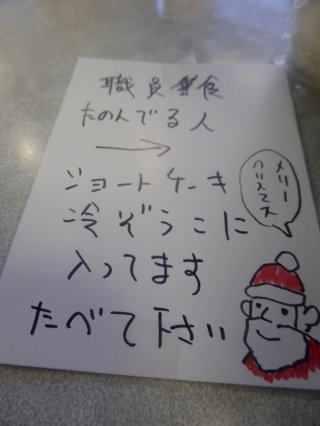 職員食
たのんでる人
ジョートケーキ
冷ぞうこに
入ってます
たべて下さい
メリー
クリスマス